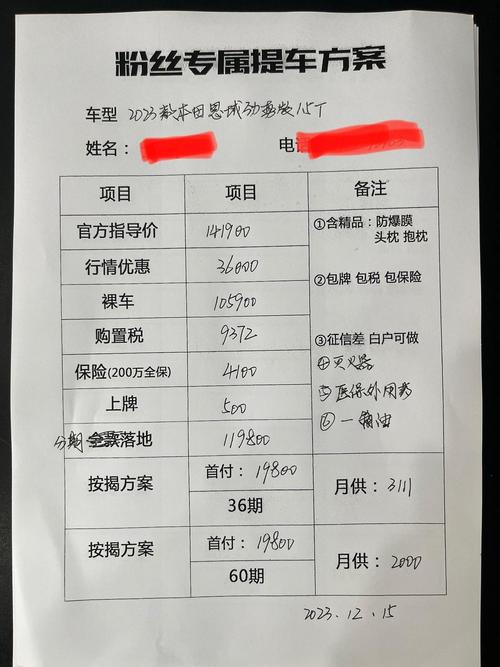 粉丝专属提车方案
车型 2023款本田思域劲动版1.5T
姓名：
电话
项目 项目 备注
官方指导价 141900 ①含精品：防爆膜
头枕 抱枕
行情优惠 36000 ②包牌 包税 包保险
裸车 105900
购置税 9372 ③征信差 白户可做
保险(200万全保) 4100 ④灭火器
⑤医保外用药
上牌 500 ⑥一箱油
分期 全款落地 119800
按揭方案 首付：19800 月供：3111
36期
按揭方案 首付：19800 月供：2000
60期
2023.12.15